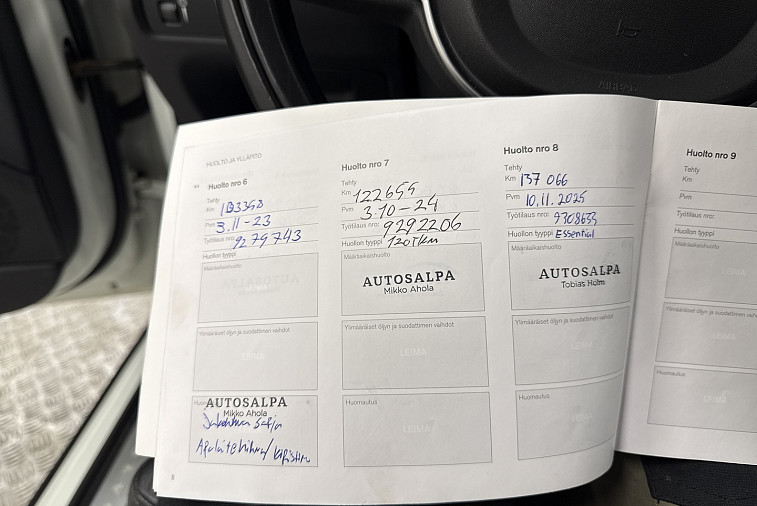 HUOLTO JA YLLÄPITO
Huolto nro 6
Tehty
Km
Pvm 3.11-23
Työtilaus nro: 9279743
Huollon tyyppi
Määräaikaishuolto
Ylimääräiset öljyn ja suodattimen vaihdot
LEIMA
AUTOSALPA
Mikko Ahola
8
Huolto nro 7
Tehty
Km 122655
Pvm 3.10-24
Työtilaus nro: 9292206
Huollon tyyppi 120Tkm
Määräaikaishuolto
AUTOSALPA
Mikko Ahola
Ylimääräiset öljyn ja suodattimen vaihdot
LEIMA
Huomautus
LEIMA
Huolto nro 8
Tehty
Km 137 066
Pvm 10.11.2025
Työtilaus nro: 9308633
Huollon tyyppi Essential
Määräaikaishuolto
AUTOSALPA
Tobias Holm
Ylimääräiset öljyn ja suodattimen vaihdot
LEIMA
Huomautus
LEIMA
Huolto nro 9
Tehty
Km
Pvm
Työtilaus nro:
Huollon tyyppi
Määräaikaishuolto
LEIMA
LEIMA
Huomautus
LEIMA